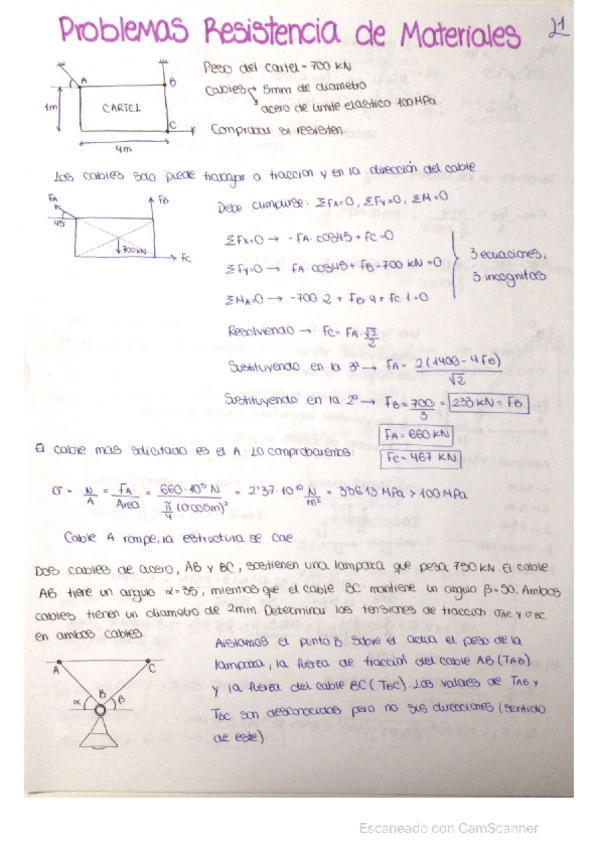 Problemas Resistencia de Materiales
21
A
B
C
CARTEL
1m
4m
Peso del cartel = 700 kN
Cables
5mm de diametro
acero de limite elastico 100MPa
Comprobar si resisten
Los cables solo puede trabajar a traccion y en la dirección del cable
FA
45
FB
700kN
FC
Debe cumplirse: ΣFx=0, ΣFy=0, ΣM=0
ΣFx=0 → -FA·cos45 + FC=0
ΣFy=0 → FA cos45 + FB-700 kN =0
ΣMA=0 → -700·2 + FB·4 + FC·1=0
3 ecuaciones,
3 incognitas
Resolviendo → FC= FA·√2/2
Sustituyendo en la 3ª → FA= 2(1400-4FB)/√2
Sustituyendo en la 2ª → FB= 700/3 = 233 kN = FB
FA=660kN
FC=467 kN
El cable mas solicitado es el A. Lo comprobaremos:
σ = N/A = FA/Area = 660·10³ N / π/4 (0'005m)² = 2'37·10¹⁰ N/m² = 33613 MPa > 100MPa
Cable A rompe, la estructura se cae
Dos cables de acero, AB y BC, sostienen una lampara que pesa 750kN El cable
AB tiene un angulo α=35°, mientras que el cable BC mantiene un angulo β=50°. Ambos
cables tienen un diametro de 2mm Determinar las tensiones de tracción σAC y σBC
en ambos cables.
A
C
B
α
β
Aislamos el punto B. Sobre el actua el peso de la
lampara, la fuerza de tracción del cable AB (TAB)
y la fuerza del cable BC (TBC). Los valores de TAB y
TBC son desconocidos pero no sus direcciones (sentido
de este).
Escaneado con CamScanner